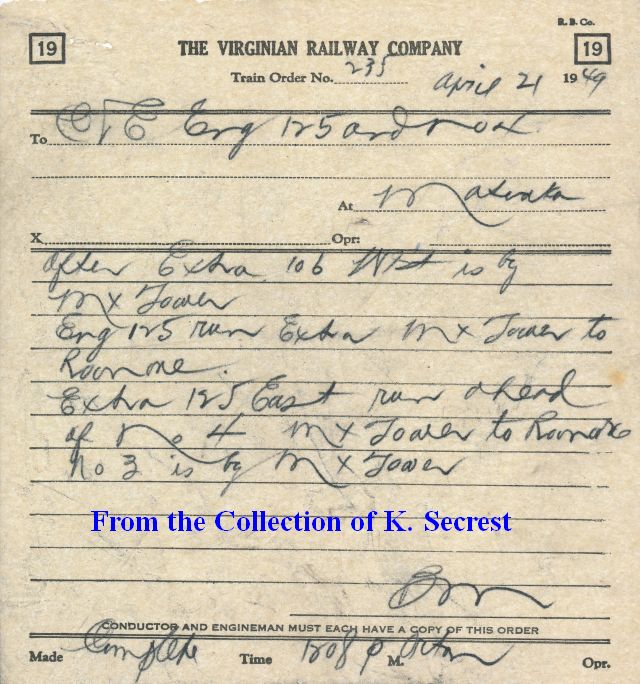 R. B. Co.
19 THE VIRGINIAN RAILWAY COMPANY 19
Train Order No. 235 April 21 1949
To C&E Eng 125 and No 4
At Matoaka
X Opr:
After Extra 106 West is by
MX Tower
Eng 125 run Extra MX Tower to
Roanoke.
Extra 125 East run ahead
of No 4 MX Tower to Roanoke
No 3 is by MX Tower
From the Collection of K. Secrest
CONDUCTOR AND ENGINEMAN MUST EACH HAVE A COPY OF THIS ORDER
Made Complete Time 1208 P M. Opr.